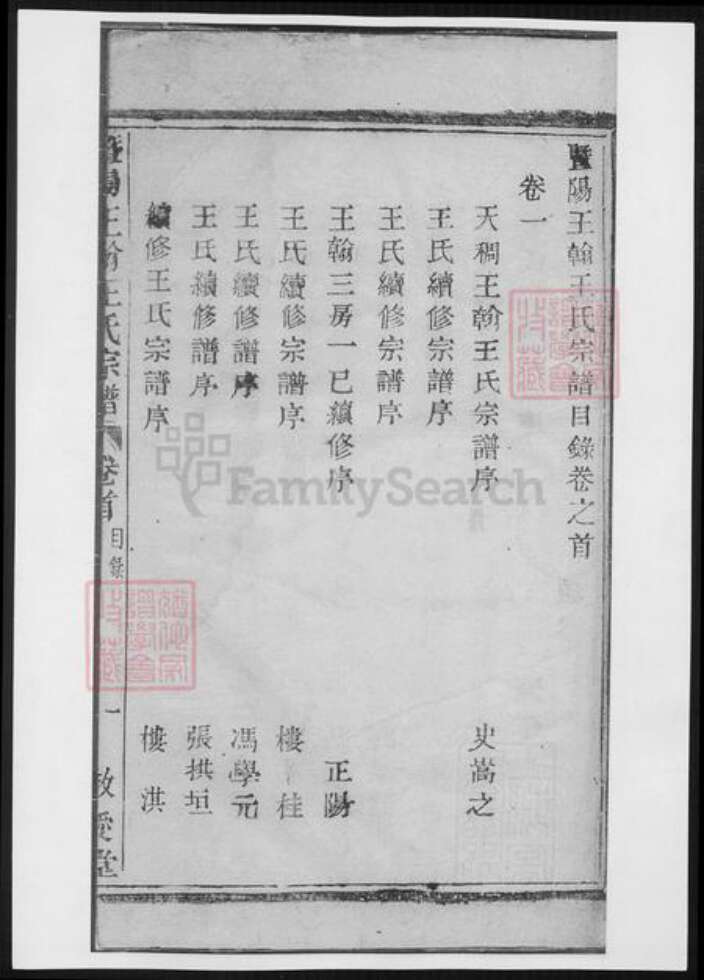 暨陽王翰王氏宗譜目錄卷之首
卷一
天稠王翰王氏宗譜序 史嵩之
王氏續修宗譜序
王氏續修宗譜序
王翰三房一已續修序 正陽
王氏續修宗譜序 樓桂
王氏續修譜序 馮學元
王氏續修譜序 張拱垣
續修王氏宗譜序 樓淇
暨陽王翰王氏宗譜 卷首 目錄 一 敘愛堂
FamilySearch